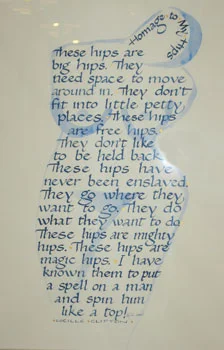 Homage to My Hips
These hips are
big hips. They
need space to move
around in. They don't
fit into little petty
places. These hips
are free hips.
They don't like
to be held back.
These hips have
never been enslaved.
They go where they
want to go. They do
what they want to do
These hips are mighty
hips. These hips are
magic hips. I have
known them to put
a spell on a man
and spin him
like a top!
LUCILLE CLIFTON